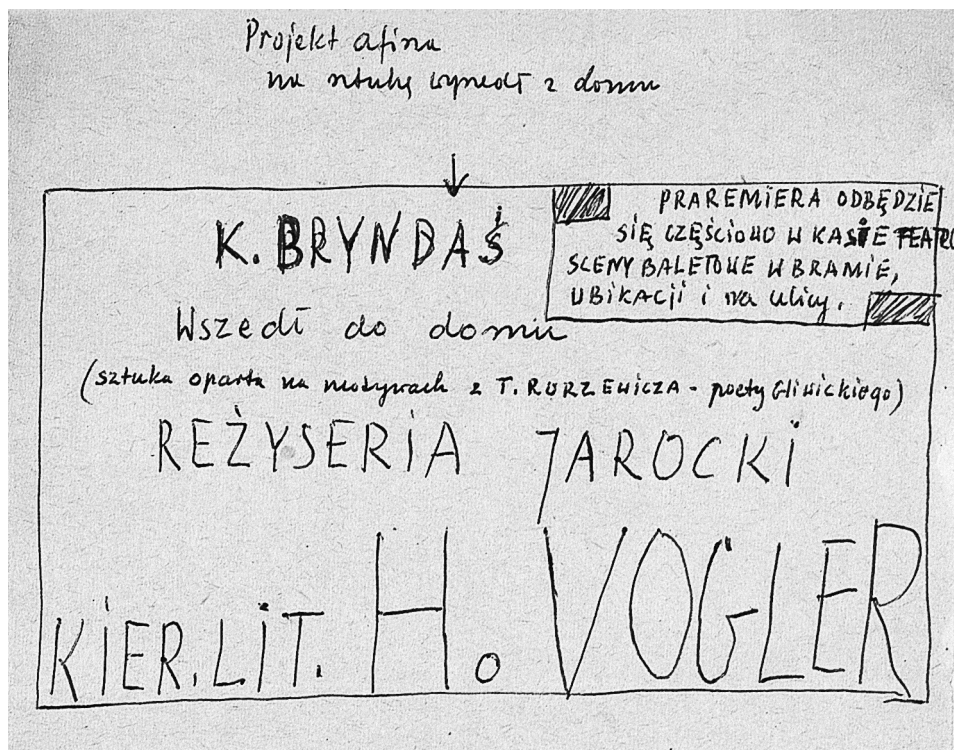 Projekt afisza
na sztukę wyszedł z domu
K. BRYNDAŚ
PRAREMIERA ODBĘDZIE
SIĘ CZĘŚCIOWO W KASIE TEATRU
SCENY BALETOWE W BRAMIE,
UBIKACJI i na ulicy.
Wszedł do domu
(sztuka oparta na motywach z T. RORZEWICZA - poety Gliwickiego)
REŻYSERIA JAROCKI
KIER. LIT. H. VOGLER